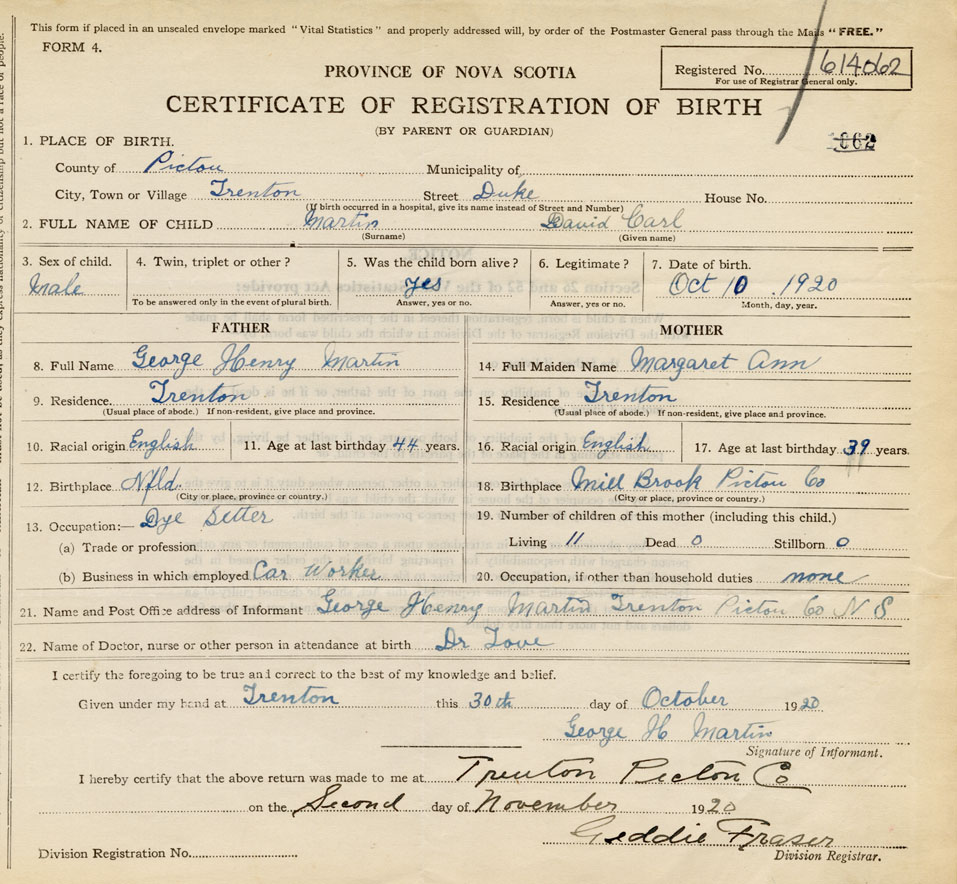 This form if placed in an unsealed envelope marked "Vital Statistics" and properly addressed will, by order of the Postmaster General pass through the Mails "FREE."
FORM 4.
PROVINCE OF NOVA SCOTIA
Registered No. 614062
For use of Registrar General only.
CERTIFICATE OF REGISTRATION OF BIRTH
(BY PARENT OR GUARDIAN)
1. PLACE OF BIRTH.
County of Pictou Municipality of
City, Town or Village Trenton Street Duke House No.
(If birth occurred in a hospital, give its name instead of Street and Number)
2. FULL NAME OF CHILD Martin David Carl
(Surname) (Given name)
3. Sex of child. 4. Twin, triplet or other? 5. Was the child born alive? 6. Legitimate? 7. Date of birth.
Male yes Oct 10 1920
To be answered only in the event of plural birth. Answer, yes or no. Answer, yes or no. Month, day, year.
FATHER MOTHER
8. Full Name George Henry Martin 14. Full Maiden Name Margaret Ann
9. Residence. Trenton 15. Residence Trenton
(Usual place of abode.) If non-resident, give place and province. (Usual place of abode.) If non-resident, give place and province.
10. Racial origin English 11. Age at last birthday 44 years. 16. Racial origin English 17. Age at last birthday 39 years.
12. Birthplace Nfld. 18. Birthplace Mill Brook Pictou Co
(City or place, province or country.) (City or place, province or country.)
13. Occupation:— Dye Setter 19. Number of children of this mother (including this child.)
(a) Trade or profession Living 11 Dead 0 Stillborn 0
(b) Business in which employed Car Worker 20. Occupation, if other than household duties none
21. Name and Post Office address of Informant George Henry Martin Trenton Pictou Co N S
22. Name of Doctor, nurse or other person in attendance at birth Dr Love
I certify the foregoing to be true and correct to the best of my knowledge and belief.
Given under my hand at Trenton this 30th day of October 1920
George H Martin
Signature of Informant.
I hereby certify that the above return was made to me at Trenton Picton Co
on the Second day of November 1920
Geddie Fraser
Division Registrar.
Division Registration No.